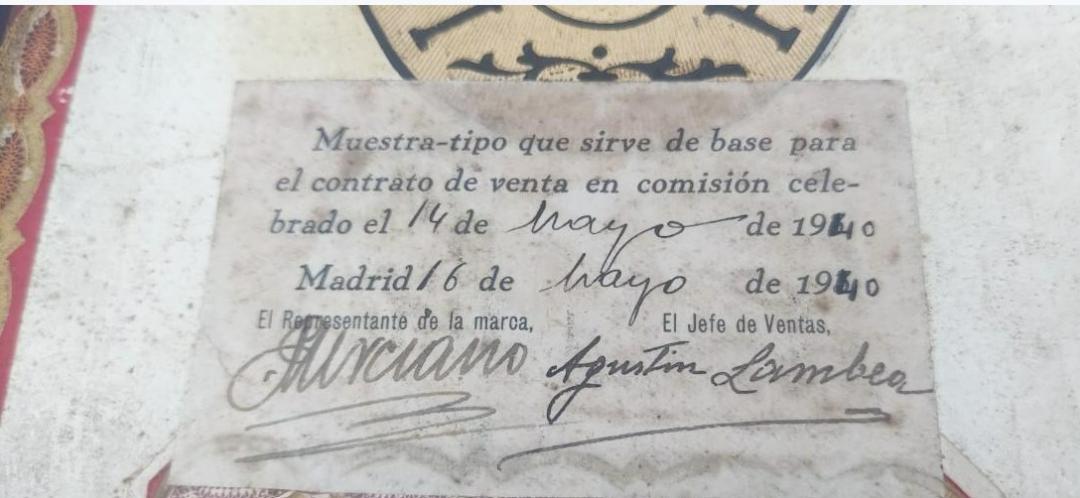 Muestra-tipo que sirve de base para
el contrato de venta en comisión cele-
brado el 14 de Mayo de 1940
Madrid 16 de Mayo de 1940
El Representante de la marca, El Jefe de Ventas,
Murciano Agustin Lambea